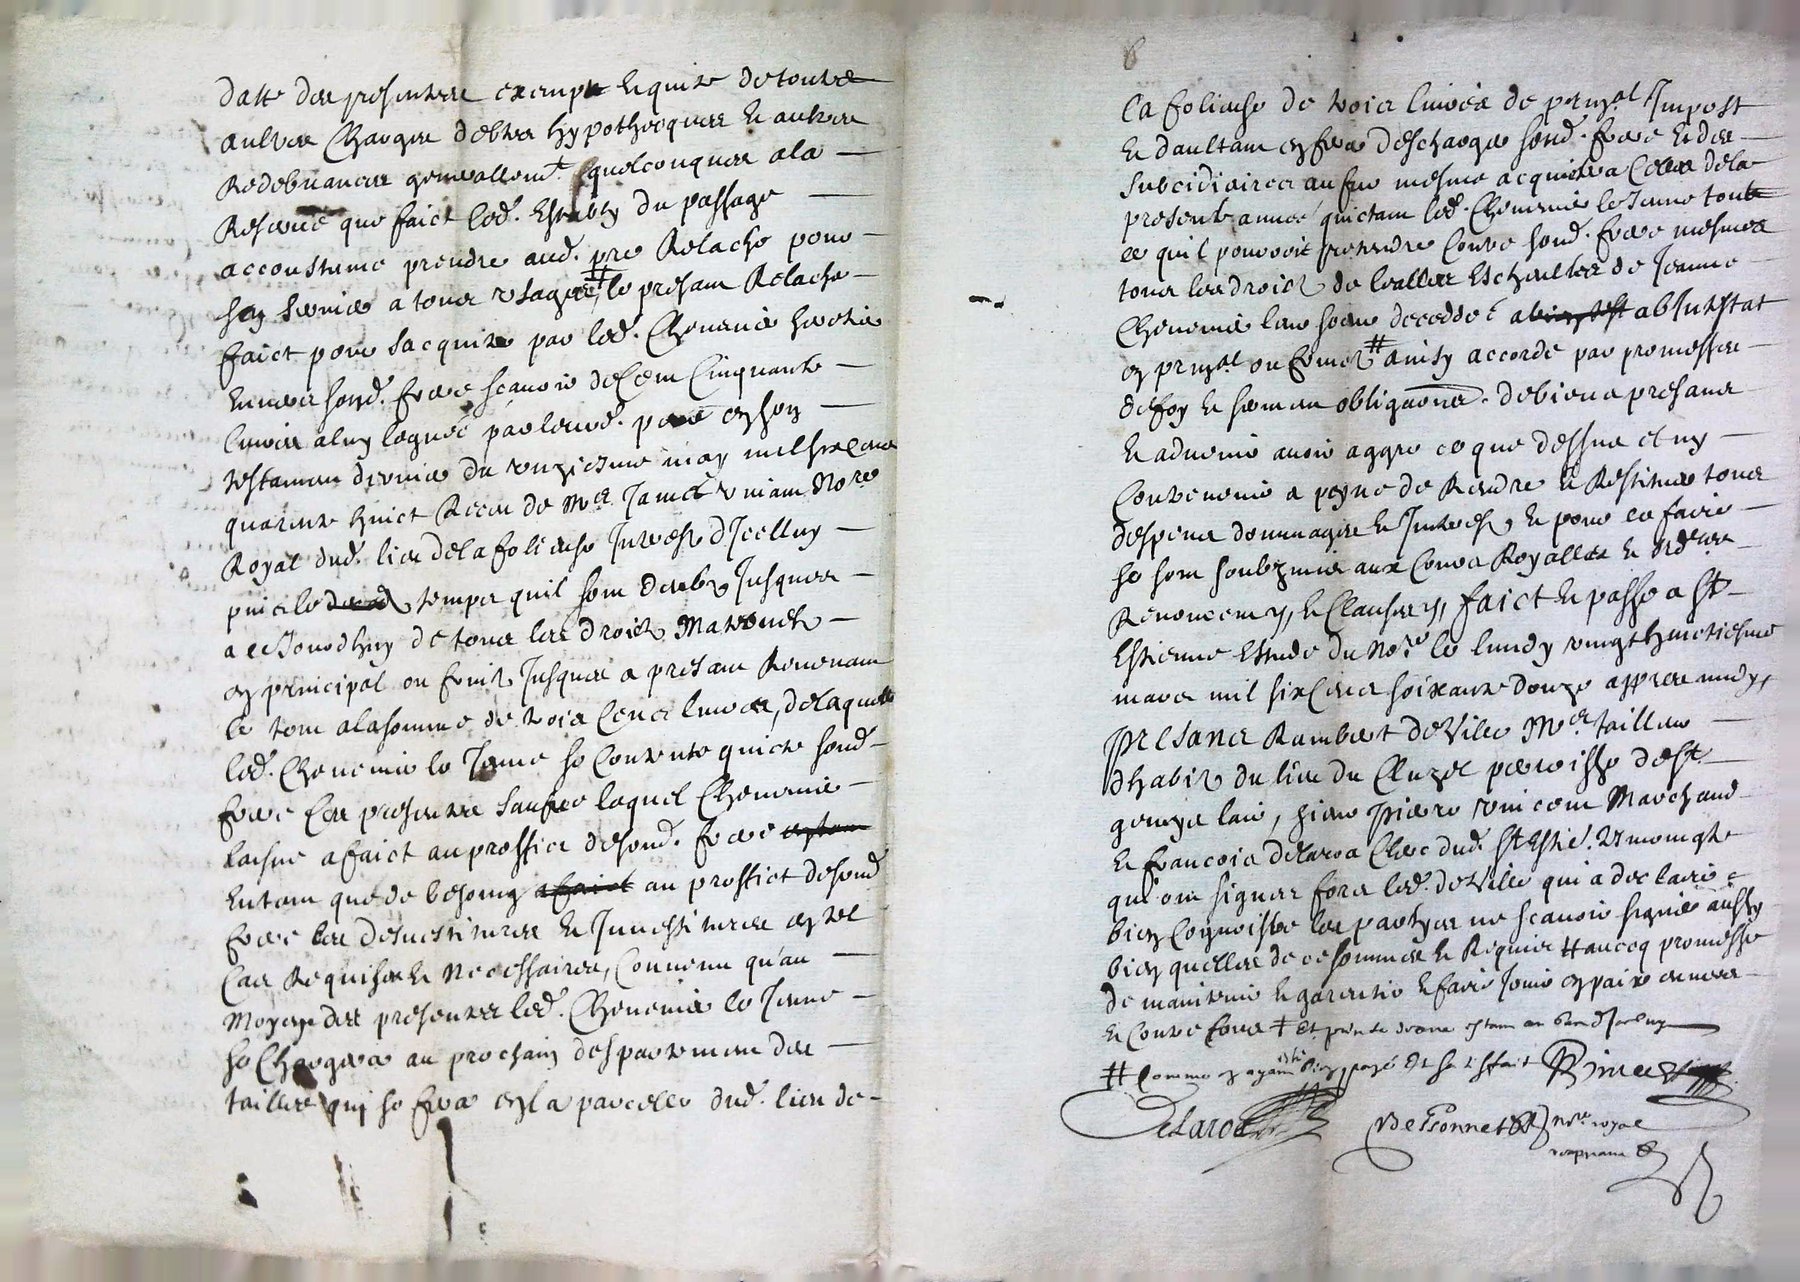 datte des presentes exempte & quitte de toutes
aultres charges debtes hypothecques & aultres
Redebvances generallemt. quelconques a la
Reserve que faict led. Establiz du passage
accoustume prendre aud. pre Relache pour
son service a tous usages ‡ le presant Relache
faict pour sacquiter par led. Chomenie heretie
envers sond. frere scavoir de Cent Cinquante
livres a luy legueé par leurd. pere en son
testament dernier du unziesme may mil six cens
quarente huict Receu de Me. Jamet Nore
Royal dud. lieu de la foliouse Interestz dicelluy
puis le temps quil sont deubz Jusques
a ce Jourdhuy de tous les droictz Maternelz
en principal ou fruictz Jusques a presant Revenant
le tout a la somme de trois Cens livres, de laquelle
led. Chomenie le Jeune se Contente quicte sond.
frere Ces presentes sauf lequel Chomenie
laisne a faict au proffict de sond. frere
Entant que de besoing a faict au proffict de sond
frere les desvestitures & Investitures en tel
Cas Requises & Necessaires, Convenu qu'au
Moyen des presentes led. Chomenie le Jeune
se Chargera au prochain despartement des
tailles qui se fera en la parcelle dud. lieu de
la foliouse de trois livres de prinpal Impost
& daultant en fera descharger sond. frere & des
subcidiaires au fur mesme acquittera Celles de la
presente année quictant led. Chomenie le Jeune toute
ce quil pouvoit pretendre Contre sond. frere mesmes
tous les droictz de Jeanne
Chomenie leur soeur deceddeé abintestat
en prinpal ou fruictz ‡‡ ainsy accorde par promesses
de foy & serment obligaons. de biens presans
& advenir avoir aggre ce que dessus et ny
Contrevenir a peyne de Rendre & Restituer tous
despens dommages & Interestz, & pour ce faire
se sont soubzmis aux Cours Royalles & ordres
Renoncems, & Clauses, faict & passe a St
Estienne Estude du Nore. le lundy vingt huictiesme
mars mil six Cens soixante douze appres midy,
presans Rambert de Ville Me. tailleur
dhabitz du lieu du Cluzel parroisse de St
genys lair, sieur Piere Marchand
& francois delaroa Clerc dud. St Estie. tesmoingtz
qui ont signes fors led. de Ville qui a declaire
bien Cognoistre les partyes ne scavoir signer aussy
bien quelles de ce sommées & Requis ‡‡ aveq promesse
de maintenir & garentir & faire Jouir en paix envers
& Contre tous ‡ et
‡‡ Comme payé et satisfait
Delaroa
nore. royal